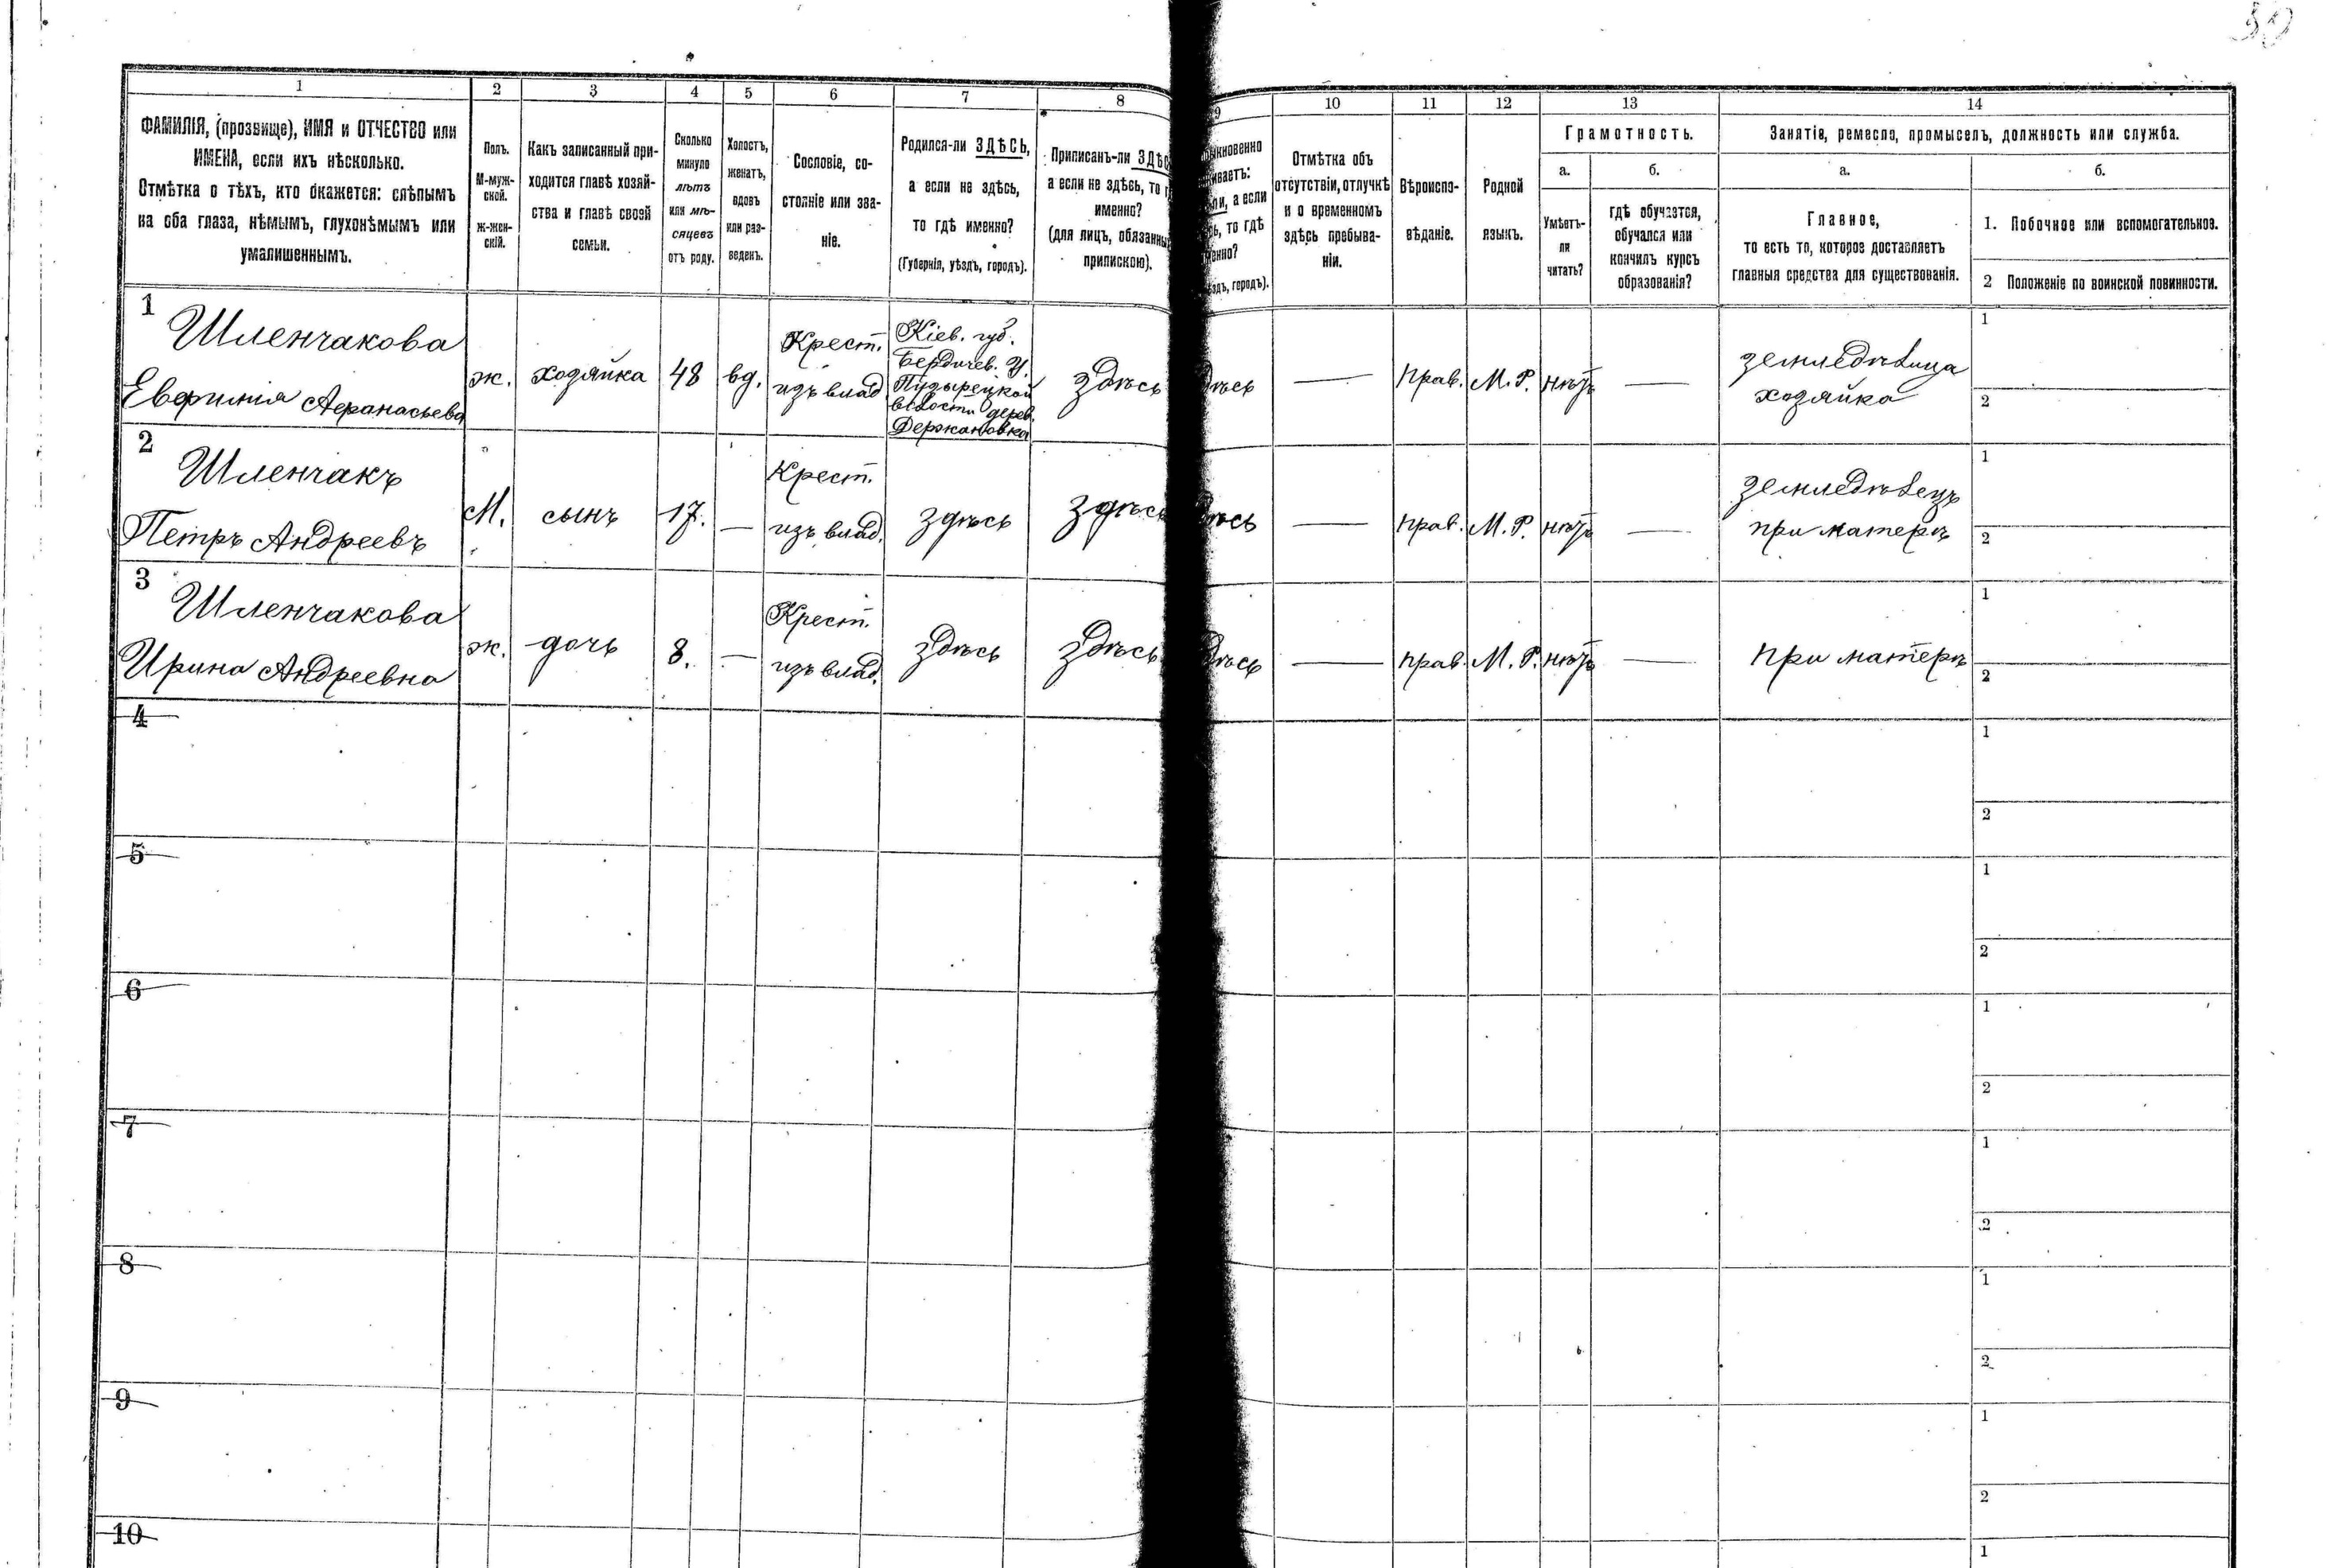 30
1
2
3
4
5
6
7
8
9
10
11
12
13
14
ФАМИЛІЯ, (прозвище), ИМЯ и ОТЧЕСТВО или
ИМЕНА, если ихъ нѣсколько.
Отмѣтка о тѣхъ, кто окажется: слѣпымъ
на оба глаза, нѣмымъ, глухонѣмымъ или
умалишеннымъ.
Полъ.
М-муж-
ской.
ж-жен-
скій.
Какъ записанный при-
ходится главѣ хозяй-
ства и главѣ своей
семьи.
Сколько
минуло
лѣтъ
или мѣ-
сяцевъ
отъ роду.
Холостъ,
женатъ,
вдовъ
или раз-
веденъ.
Сословіе, со-
стояніе или зва-
ніе.
Родился-ли ЗДѢСЬ,
а если не здѣсь,
то гдѣ именно?
(Губернія, уѣздъ, городъ).
Приписанъ-ли ЗДѢС
а если не здѣсь, то г
именно?
(для лицъ, обязанны
припискою).
ыкновенно
иваетъ:
ли, а если
ь, то гдѣ
енно?
здъ, городъ).
Отмѣтка объ
отсутствіи, отлучкѣ
и о временномъ
здѣсь пребыва-
ніи.
Вѣроиспо-
вѣданіе.
Родной
языкъ.
Грамотность.
а.
Умѣетъ-
ли
читать?
б.
гдѣ обучается,
обучался или
кончилъ курсъ
образованія?
Занятіе, ремесло, промыселъ, должность или служба.
а.
Главное,
то есть то, которое доставляетъ
главныя средства для существованія.
б.
1. Побочное или вспомогательное.
2 Положеніе по воинской повинности.
1
Шленчакова
Евфимія Афанасьева
ж.
хозяйка
48
вд.
Крест.
изъ влад
Кіев. губ.
Бердичев. У.
Пузырецкой
волости дерев.
Держановка
здѣсь
дѣсь
—
Прав.
М. Р.
нѣтъ
—
земледѣлица
хозяйка
1
2
2
Шленчакъ
Петръ Андреевъ
М.
сынъ
17.
—
Крест.
изъ влад.
здѣсь
здѣсь
ѣсь
—
прав.
М. Р.
нѣтъ
—
земледѣлецъ
при матерѣ
1
2
3
Шленчакова
Ирина Андреевна
ж.
дочь
8.
—
Крест.
изъ влад.
здѣсь
здѣсь
дѣсь
—
прав.
М. Р.
нѣтъ
—
при матерѣ
1
2
4
1
2
5
1
2
6
1
2
7
1
2
8
1
2
9
1
2
10
1